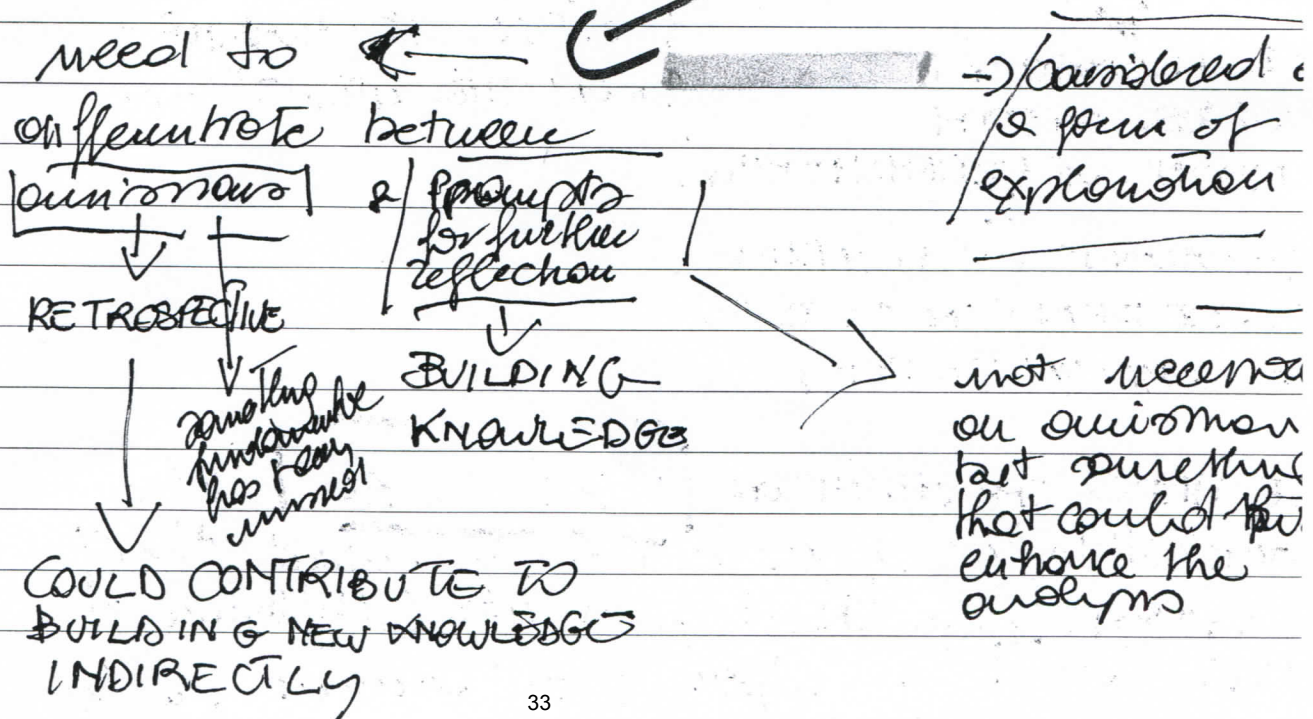 need to
differentiate between
omissions & prompts
for further
reflection
RETROSPECTIVE
something
fundamental
has been
missed
BUILDING
KNOWLEDGE
COULD CONTRIBUTE TO
BUILDING NEW KNOWLEDGE
INDIRECTLY
→ considered
a form of
explanation
not
an omission
but
that could
enhance the
analysis
33